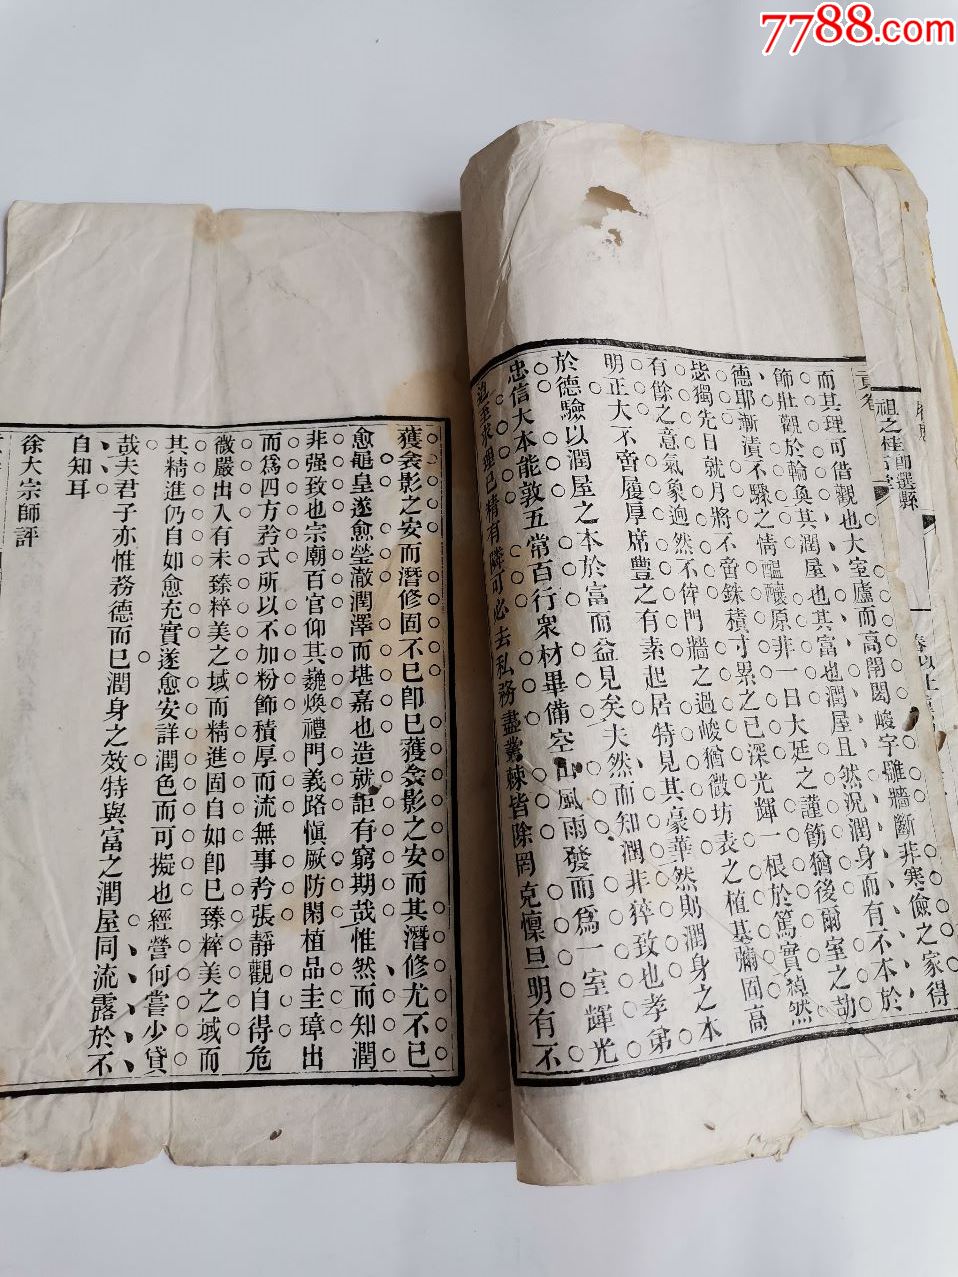 7788.com
貢卷
而其理可借觀也大室廬而高閈閎峻宇雕牆斷非寒儉之家得
飾壯觀於輪奐其潤屋也其富也潤屋且然況潤身而有不本於
德耶漸漬不驟之情醞釀原非一日大廷之謹飭猶後爾室之劼
毖獨先日就月將不啻銖積寸累之已深光輝一根於篤實焯然
有餘之意氣象逈然不侔門牆之過峻猶微坊表之植基彌固高
明正大不啻履厚席豐之有素起居特見其豪華然則潤身之本
於德驗以潤屋之本於富而益見矣夫然而知潤非猝致也孝弟
忠信大本能敦五常百行衆材畢備空山風雨發而為一室輝光
追至求理已精有隣可必去私務盡叢棘皆除罔克懍旦明有不
獲衾影之安而潛修固不已卽已獲衾影之安而其潛修尤不已
愈黽皇遂愈瑩澈潤澤而堪嘉也造就詎有窮期哉惟然而知潤
非强致也宗廟百官仰其巍煥禮門義路愼厥防閑植品圭璋出
而爲四方矜式所以不加粉飾積厚而流無事矜張靜觀自得危
微嚴出入有未臻粹美之域而精進固自如卽已臻粹美之域而
其精進仍自如愈充實遂愈安詳潤色而可擬也經營何嘗少貸
哉夫君子亦惟務德而已潤身之效特與富之潤屋同流露於不
自知耳
徐大宗師評